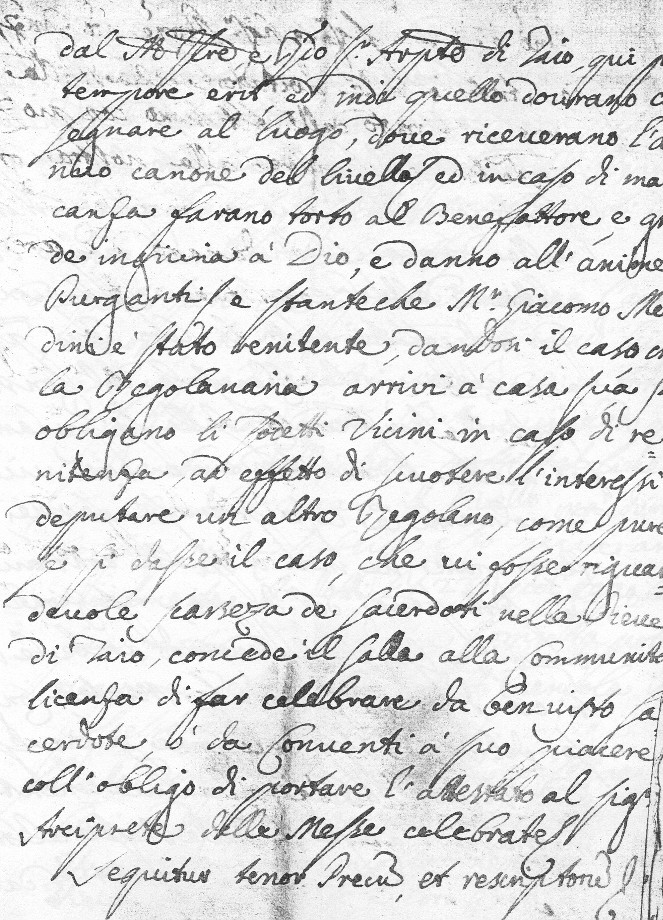 dal M Ilre e Rdo Sr Arpte di Taio, qui p
tempore erit, ed indi quello dourano c
segnare al luogo, doue riceuerano l'a
nuo canone del liuello, ed in caso di ma
canza farano torto al Benefattore, e gr
de ingiuria a' Dio, e danno all' ánime
Purganti, e stanteche Mr. Giacomo Me
dini e' stato renitente, dandosi il caso c
la Regolanaria arrivi a' casa sua s
obligano li Vicini in caso di re=
nitenza, ad effetto di scuotere l'interessi
deputare un altro Regolano, come pure
se si dasse il caso, che ui fosse riguar=
deuole scarseza de sacerdoti nella Pieue
di Taio, concede il alla Communita
licenza di far celebrare da ben uisto Sa
cerdote, o' da Conuenti a' suo piacere
coll' obligo di portare l'attestato al sigr
Arciprete delle Messe celebrate
Sequitur tenor Precū, et rescriptonē